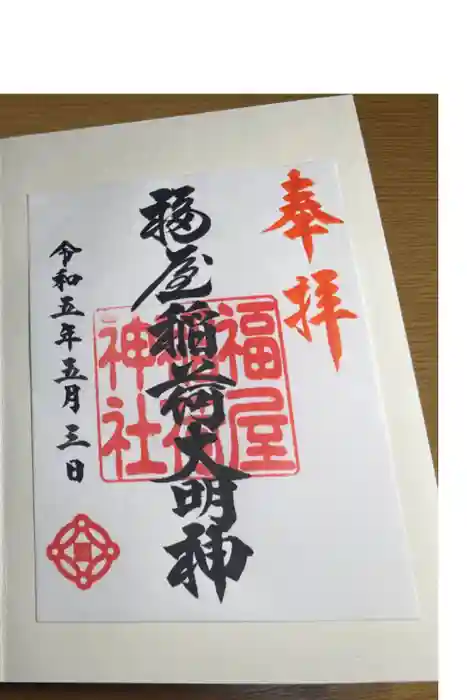 奉拝
福屋稲荷大明神
福屋
稲荷
神社
令和五年五月三日